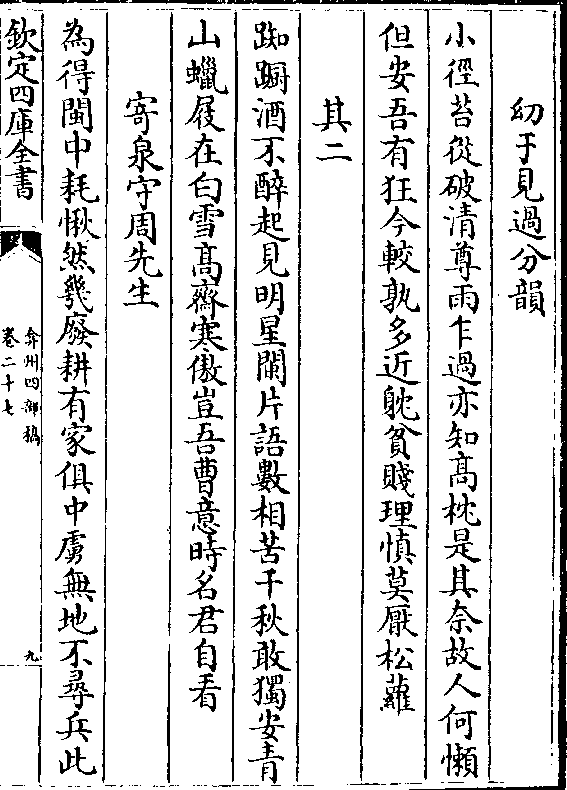 幼于見過分韻
小徑苔從破清尊雨乍過亦知髙枕是其奈故人何懶
但安吾有狂今較孰多近躭貧賤理慎莫厭松蘿
其二
踟蹰酒不醉起見明星闌片語數相苦千秋敢獨安青
山蠟屐在白雪髙齋寒傲豈吾曹意時名君自看
寄泉守周先生
為得閩中耗愀然幾廢耕有家俱中虜無地不尋兵此
欽定四庫全書
弇州四部稿
卷二十七
九